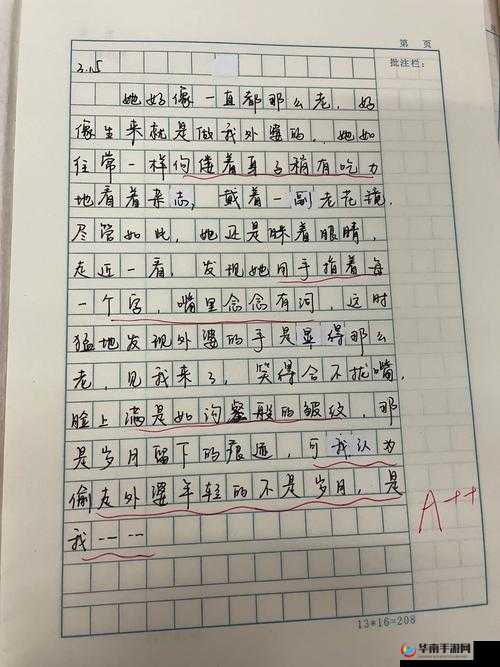 第 页
批注栏:
3.15
她好像一直都那么老，好
像生来就是做我外婆的，她如
往常一样佝偻着身子稍有吃力
地看着杂志，戴着一副老花镜，
尽管如此，她还是眯着眼睛，
走近一看，发现她用手指着每
一个字，嘴里念念有词，这时
猛地发现外婆的手是显得那么
老，见我来了，笑得合不拢嘴，
脸上满是如沟壑般的皱纹，那
是岁月留下的痕迹，可我认为
偷走外婆年轻的不是岁月，是
我----
A++
13*16=208
华南手游网